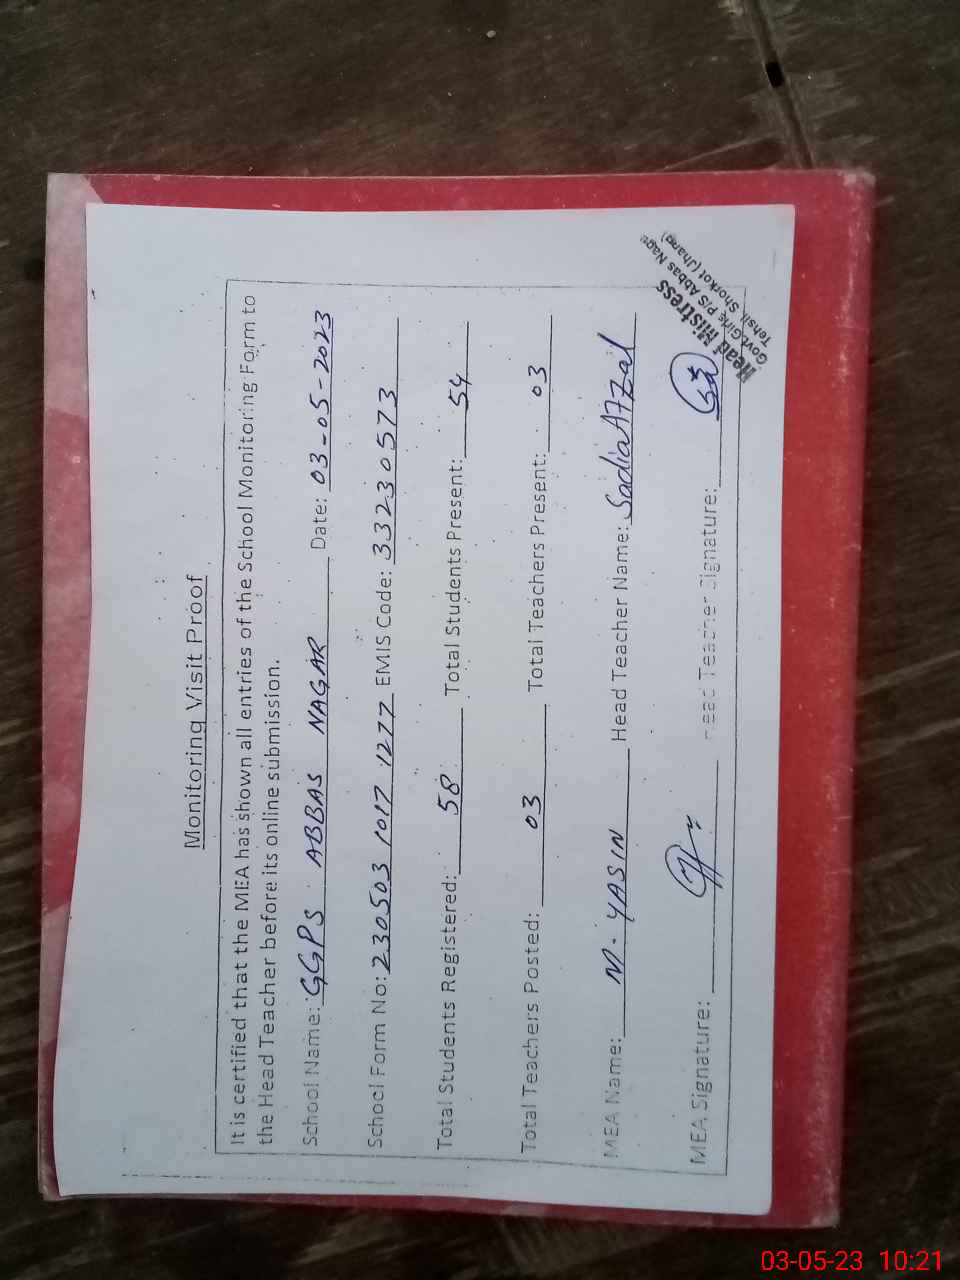 Monitoring Visit Proof
It is certified that the MEA has shown all entries of the School Monitoring Form to
the Head Teacher before its online submission.
School Name: GGPS ABBAS NAGAR Date: 03-05-2023
School Form No: 230503 1017 1277 EMIS Code: 33230573
Total Students Registered: 58 Total Students Present: 54
Total Teachers Posted: 03 Total Teachers Present: 03
MEA Name: M. YASIN Head Teacher Name: Sadia Afzal
MEA Signature: Head Teacher Signature:
Head Mistress
Govt.Girls P/S Abbas Nagar
Tehsil Shorkot (Jhang)
03-05-23 10:21